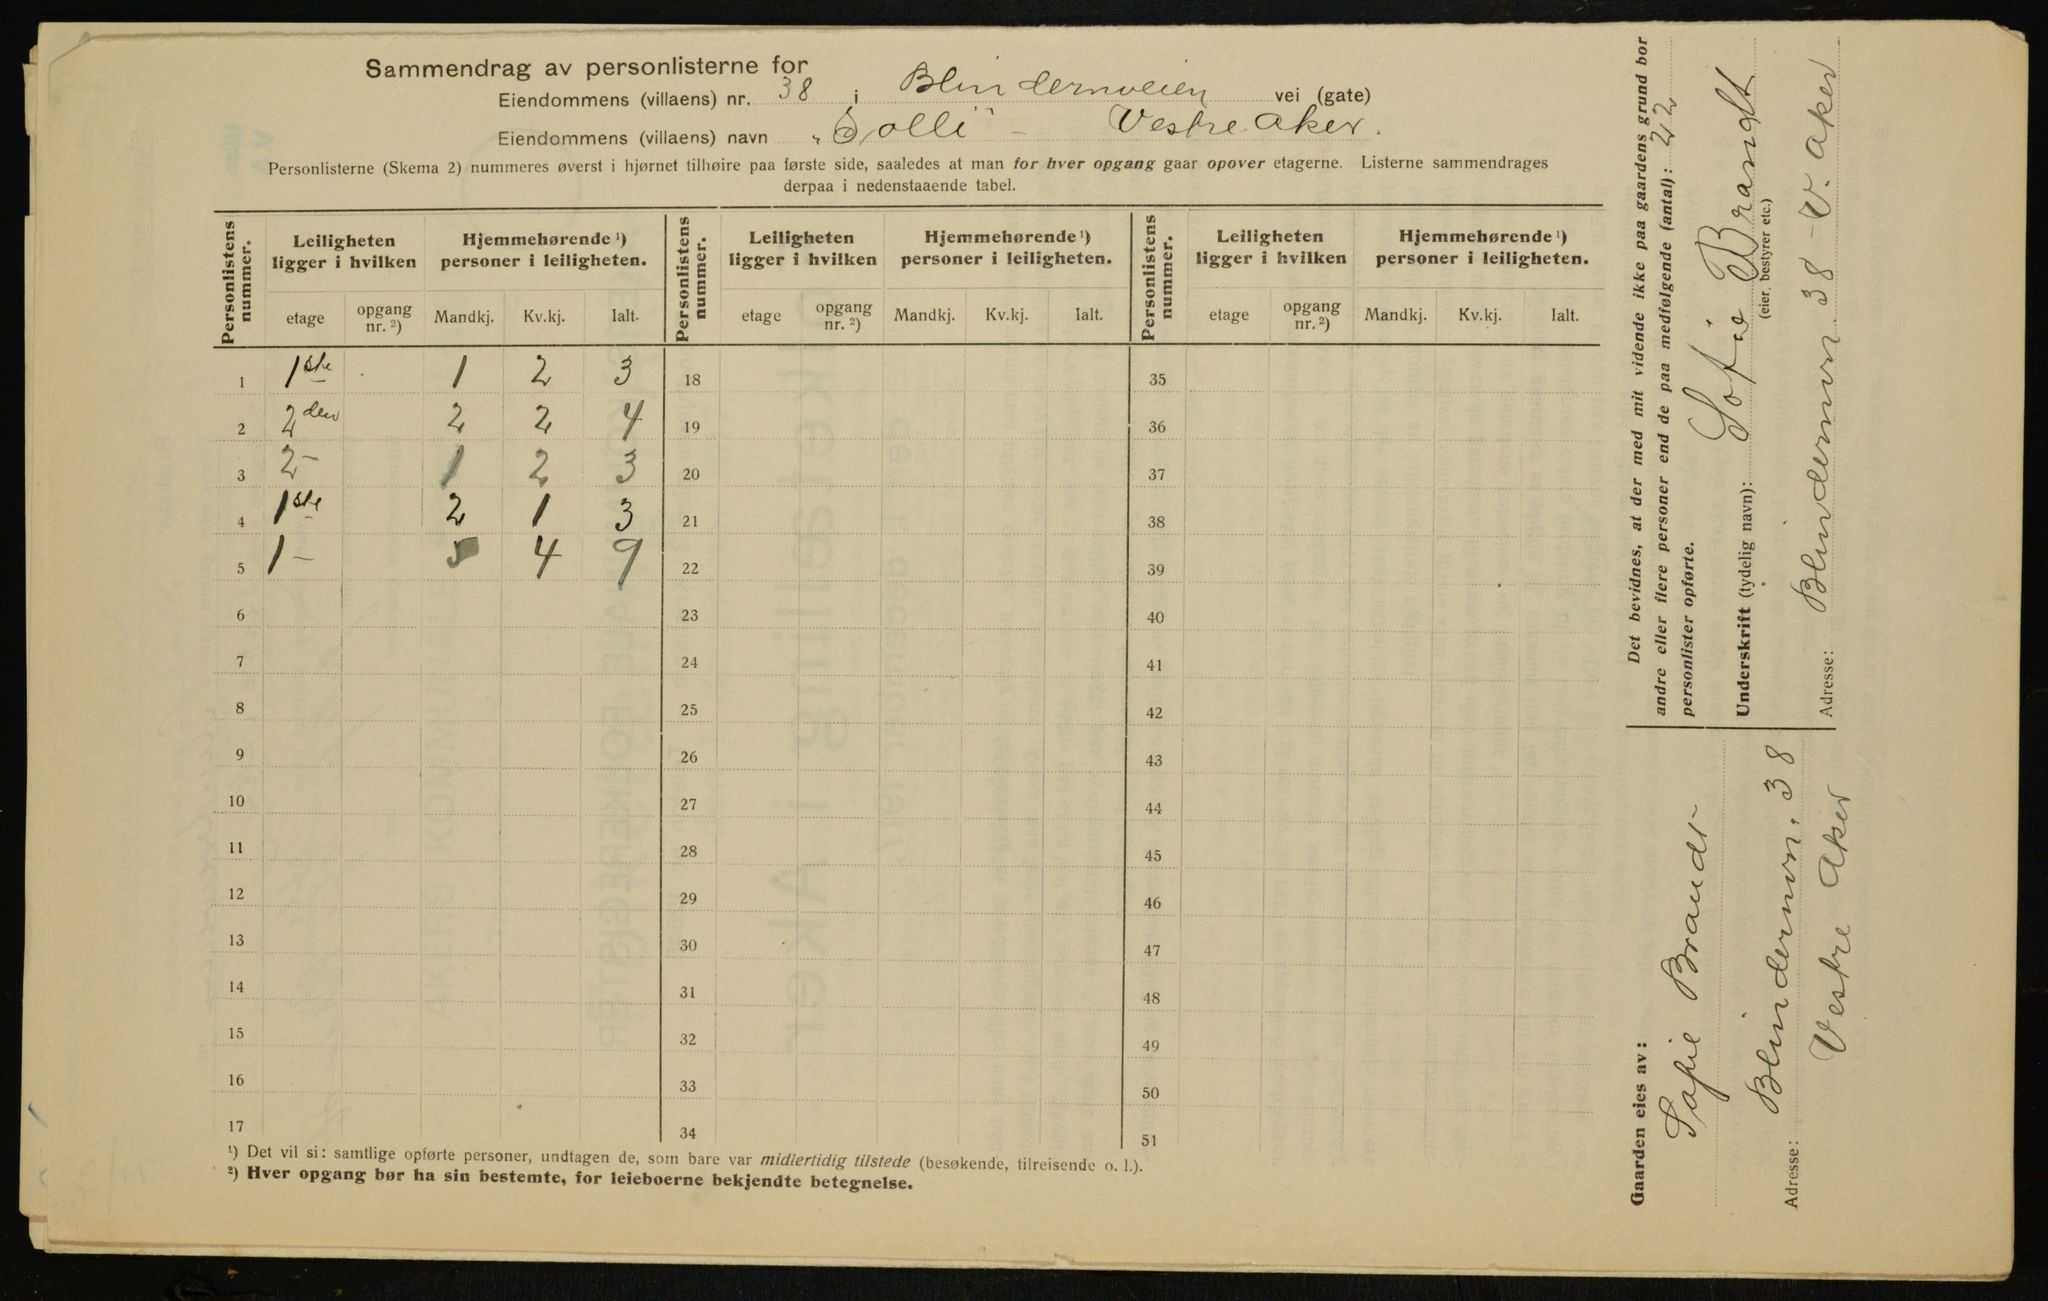 Sammendrag av personlisterne for
Eiendommens (villaens) nr. 38 i Blindernveien vei (gate)
Eiendommens (villaens) navn „Solli" – Vestre Aker.
Personlisterne (Skema 2) nummeres øverst i hjørnet tilhøire paa første side, saaledes at man for hver opgang gaar opover etagerne. Listerne sammendrages
derpaa i nedenstaaende tabel.
Personlistens nummer. Leiligheten ligger i hvilken Hjemmehørende ¹) personer i leiligheten. Personlistens nummer. Leiligheten ligger i hvilken Hjemmehørende ¹) personer i leiligheten. Personlistens nummer. Leiligheten ligger i hvilken Hjemmehørende ¹) personer i leiligheten.
etage opgang nr. ²) Mandkj. Kv.kj. Ialt. etage opgang nr. ²) Mandkj. Kv.kj. Ialt. etage opgang nr. ²) Mandkj. Kv.kj. Ialt.
1 1ste 1 2 3 18 35
2 2den 2 2 4 19 36
3 2– 1 2 3 20 37
4 1ste 2 1 3 21 38
5 1– 5 4 9 22 39
6 23 40
7 24 41
8 25 42
9 26 43
10 27 44
11 28 45
12 29 46
13 30 47
14 31 48
15 32 49
16 33 50
17 34 51
¹) Det vil si: samtlige opførte personer, undtagen de, som bare var midlertidig tilstede (besøkende, tilreisende o. l.).
²) Hver opgang bør ha sin bestemte, for leieboerne bekjendte betegnelse.
Det bevidnes, at der med mit vidende ikke paa gaardens grund bor
andre eller flere personer end de paa medfølgende (antal): 22
personlister opførte.
Underskrift (tydelig navn): Sofie Brandt
(eier, bestyrer etc.)
Adresse: Blindernvn. 38 – V. Aker
Gaarden eies av:
Sofie Brandt
Adresse: Blindernvn. 38
Vestre Aker